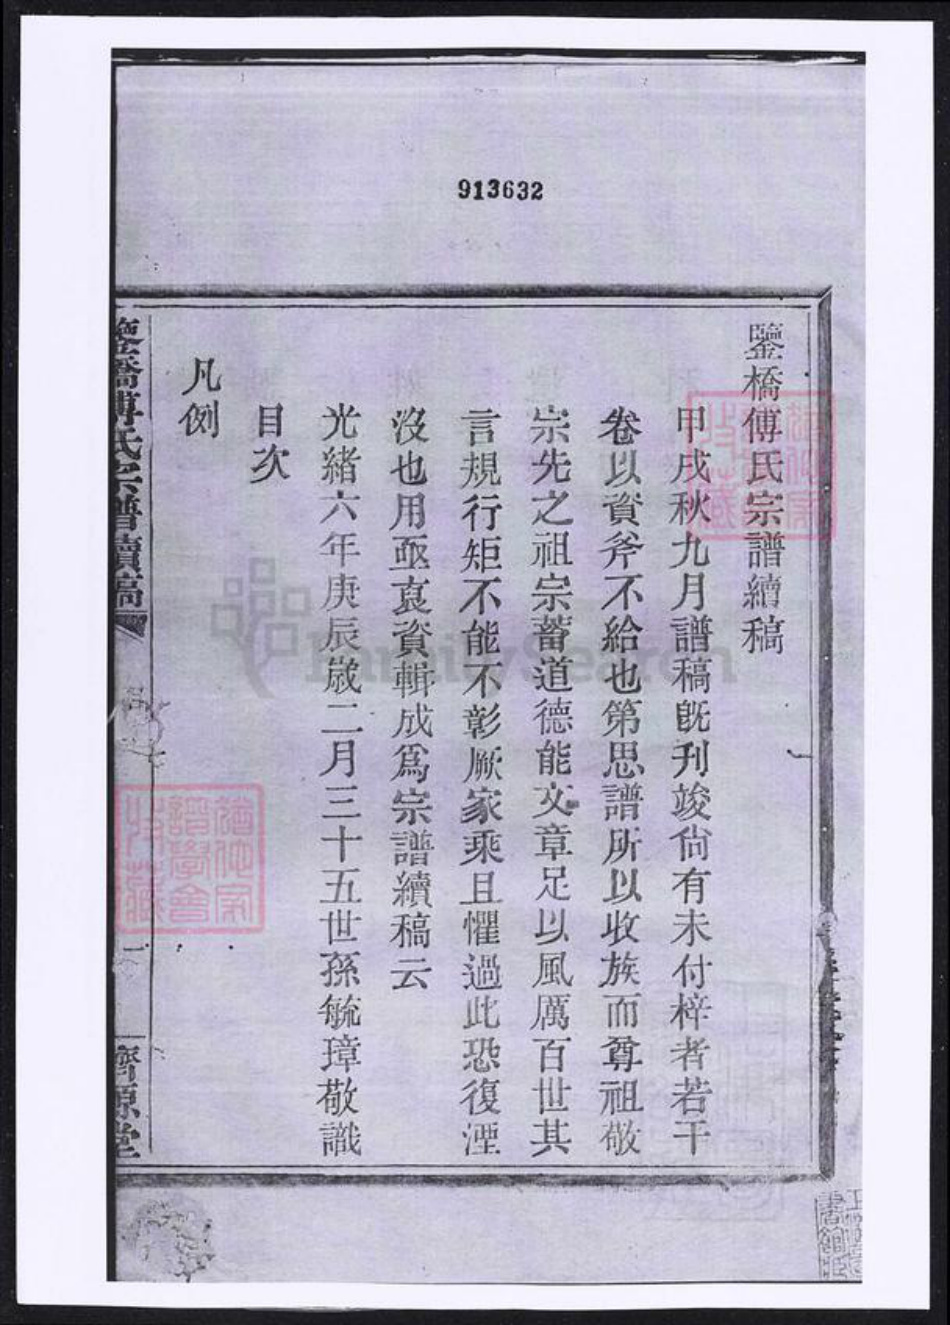 913632
鑒橋傅氏宗譜續稿
甲戌秋九月譜稿旣刋竣尙有未付梓者若干
卷以資斧不給也第思譜所以收族而尊祖敬
宗先之祖宗蓄道德能文章足以風厲百世其
言規行矩不能不彰厥家乘且懼過此恐復湮
沒也用亟裒資輯成爲宗譜續稿云
光緒六年庚辰歲二月三十五世孫毓璋敬識
目次
凡例
鑒橋傅氏宗譜續稿
一
濟源堂
FamilySearch